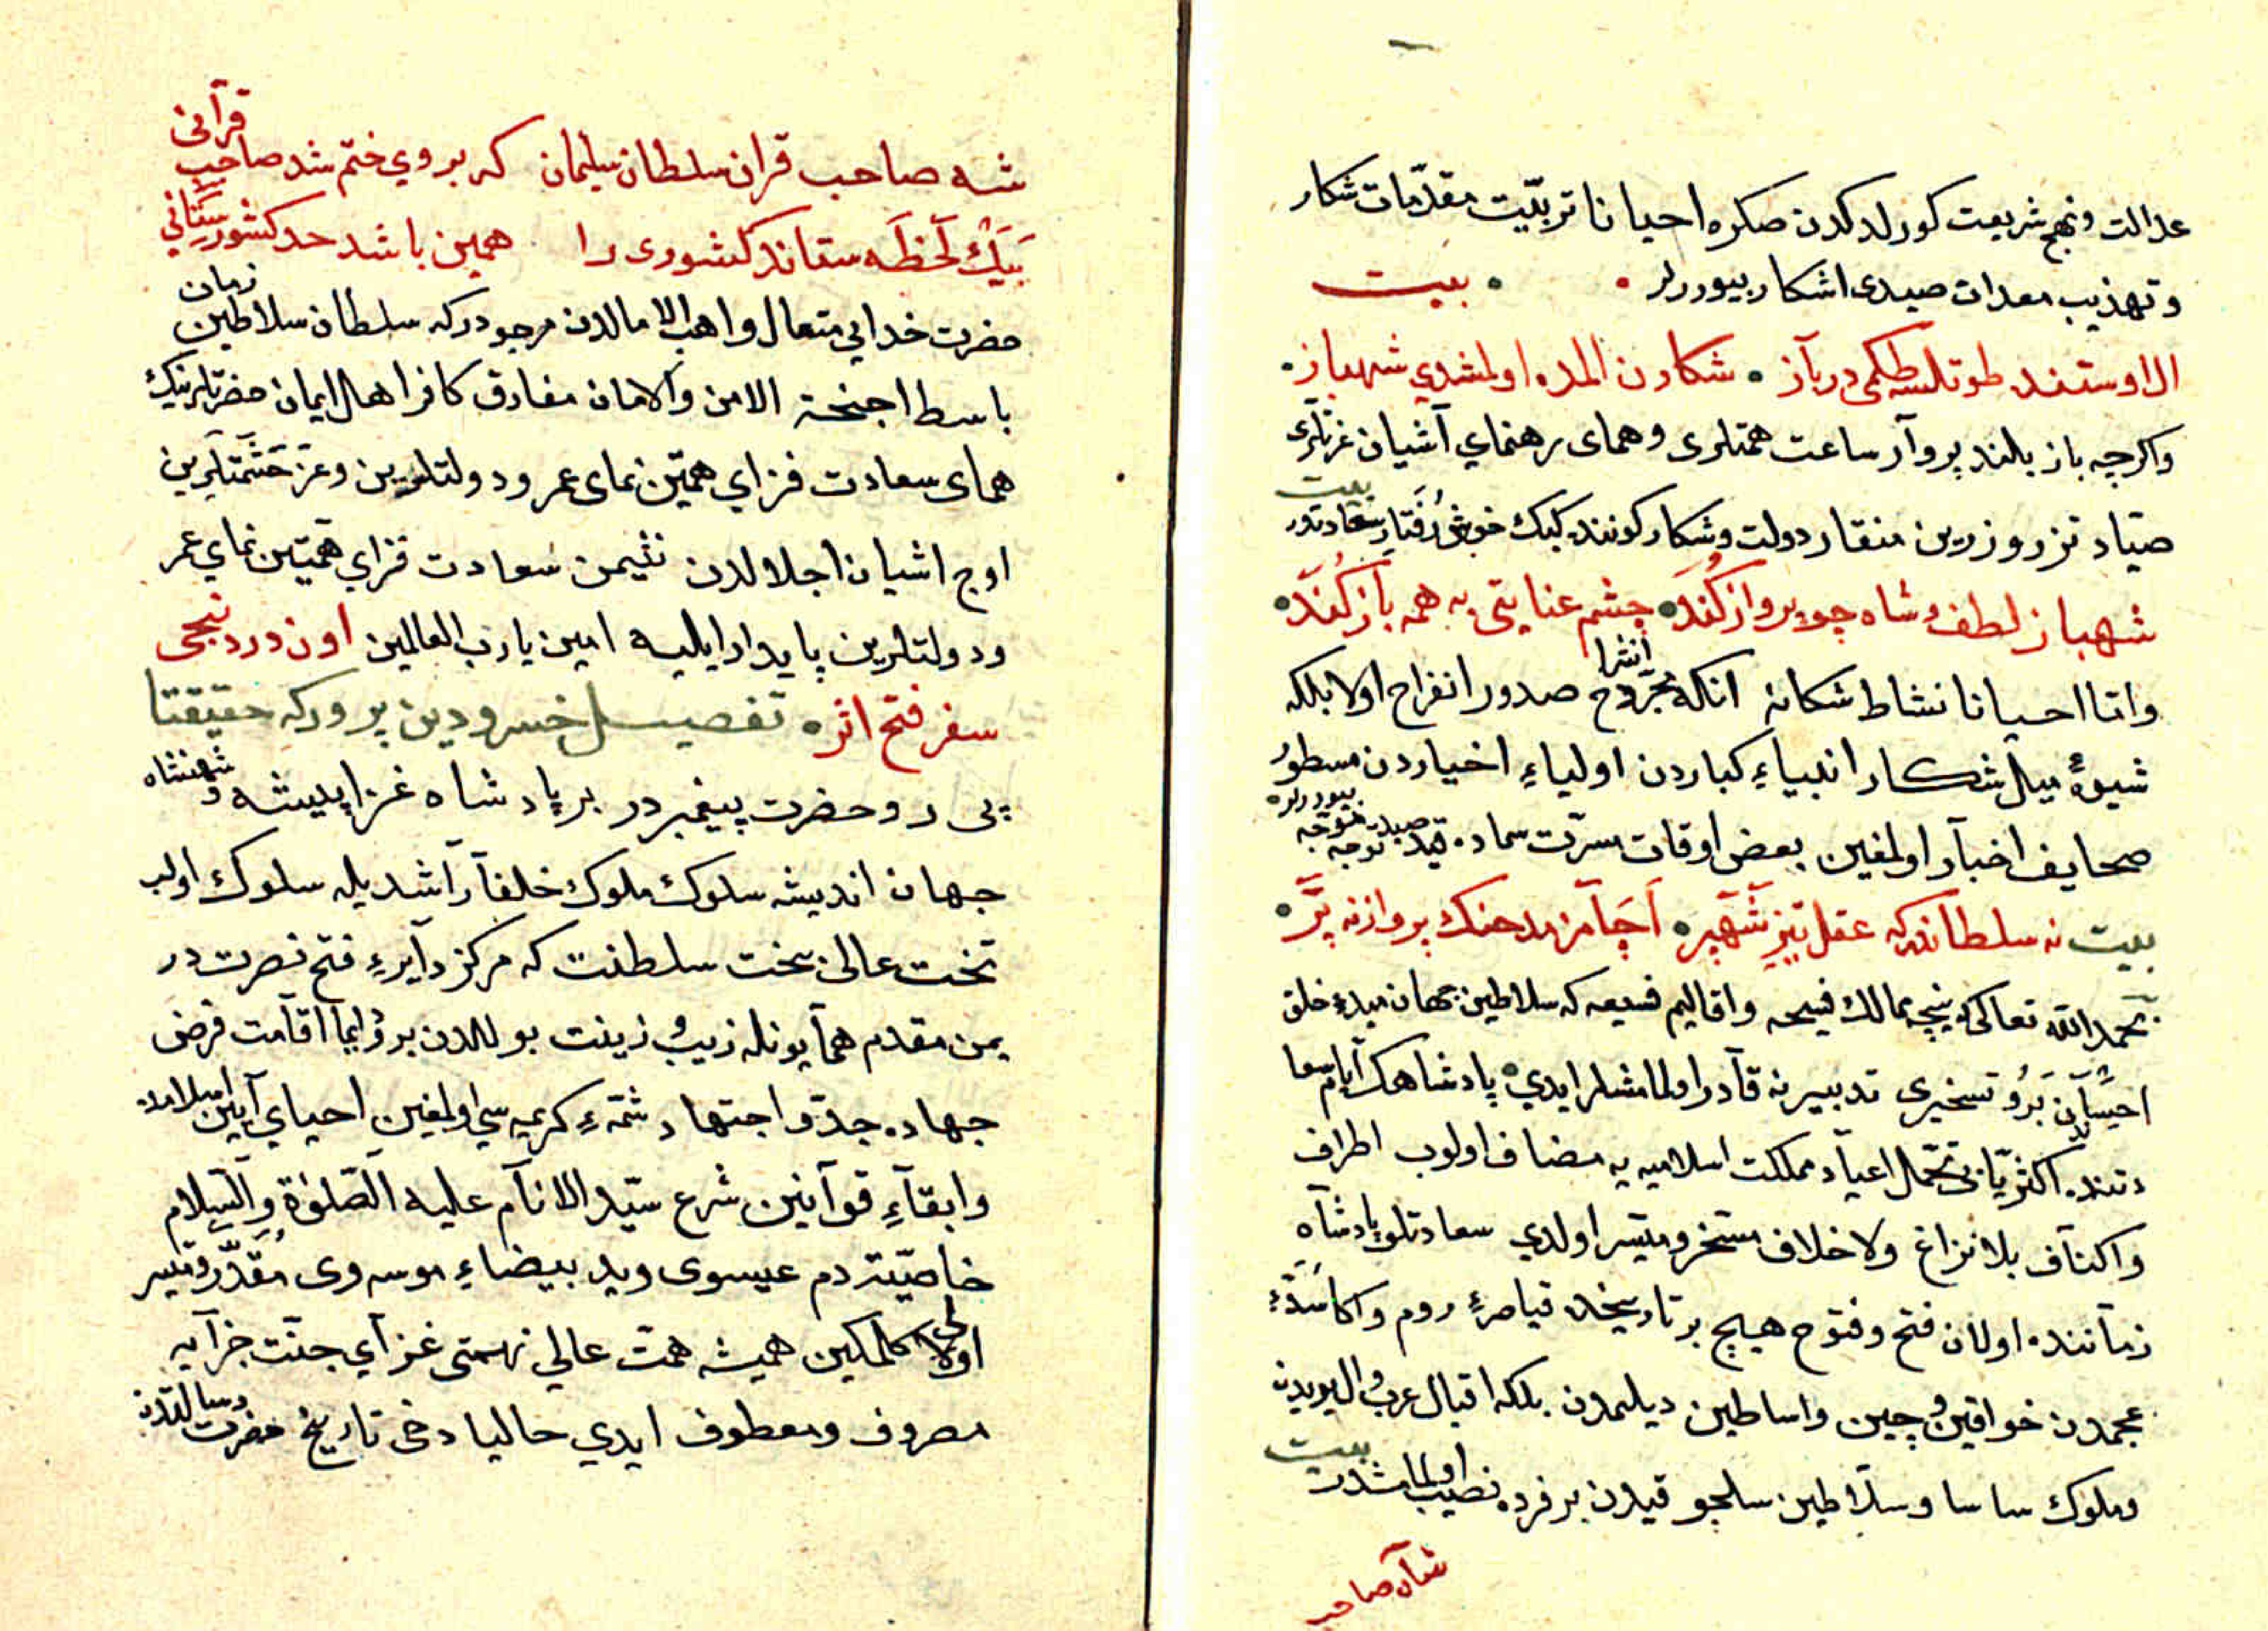 عدالت ونهج شریعت كورلدكدن صكره احیانا تربیت مقدّمات شكار
وتهذیب معدات صیدی اشكار بیوررلر بیت
ال اوستند طوتلسه طكمی در بآز شكاردن المده اولمشدی شهباز
واكرچه باز بلند پروآر ساعت همتلری وهمای رهنمای آشیان عزتلری
صیّاد تزرو زرین منقار دولت وشكار كونند كبك خوش رفتار سعادتدر بیت
شهباز لطف شاه چو پرواز كند چشم عنایتی به همه باز كند
وامّا احیانا نشاط شكانه انكله مجرّوح صدور انشرا انفراح اولا بلكه
شیوهٔ میل شكار انبیاءِ كباردن اولیاءِ اخیاردن مسطور
صحایف اخبآر اولمغین بعض اوقات مسرّت سماده صید توجه بیوررلر
بیت نه سلطاندركه عقل تیز شهپر اچآمز مدحنك پروازنه پر
بحمد الله تعالی كه نیچه ممالك فسیحه واقالیم فسیعه كه سلاطین جهان مبدءِ خلق
احیآندن برو تسخیری تدبیرنه قآدر اولمامشلر ایدی پادشاهك آیام سعا
دتنده اكثریّا نی تحمّل اعیآد مملكت اسلامیه یه مضاف اولوب اطراف
واكنآف بلا نزاغ ولا خلاف مسخر ومیّسر اولدی سعادتلو پادشآه
زمآننده اولان فتح وفتوح هیچ بر تاریخده قیاصرهٔ روم واكاسرهٔ
عجمدن خواقین چین واساطین دیلمدن بلكه اقبال عرب وال بویدن
وملوك ساسا وسلآطین سلجو قیدن بر فرده نصیب اولمامشدر بیت
شآه صاحب
شه صاحب قران سلطان سلیمان كه بر وی ختم شد صاحب قرآنی
بیك لحظه ستاند كشوری را همین باشد حد كشور ستانی
حضرت خدایی متعال واهب الامالدن مرجودركه سلطان سلاطین زمان
باسط اجنحة الامن والامان مفارق كافر اهال ایمان حضرتلرینك
همای سعادت فزای همتین نمای عمر ودولتلرین وعز حشمتلرین
اوج اشیان اجلالدن نشیمن سعادت فزای همتین نمای عمر
ودولتلرین پایدار ایلیه امین یارب العالمین اون دردنجی
سفر فتح اثر تفصیل خسرو دین پروركه حقیقتا
پی رو حضرت پیغمبردر بر پادشاه غزا پیشه وشهنشاه
جهان اندیشه سلوك ملوك خلفآر آشدیله سلوك اولب
تخت عالی بخت سلطنت كه مركز دآیرهٔ فتح نصرت در
یمن مقدم همآیونله زیب زینت بولالدن برو ایمآ اقآمت فرض
جهاده جدّ واجتهاد شمّهءِ كریمه سی اولمغین احیای آیین اسلامده
وابقآءِ قوآنین شرع سیّد الانآم علیه الصّلوٰة والسّلام
خاصیّت دم عیسوی وید بیضاءِ موسه وی مقدّر ومیسر
اولا كلمكین همیشه همت عالی نهمتی غزآی جنّت جزآیه
مصروف ومعطوف ایدی حالیا دخی تاریخ حضرت رسالتدن